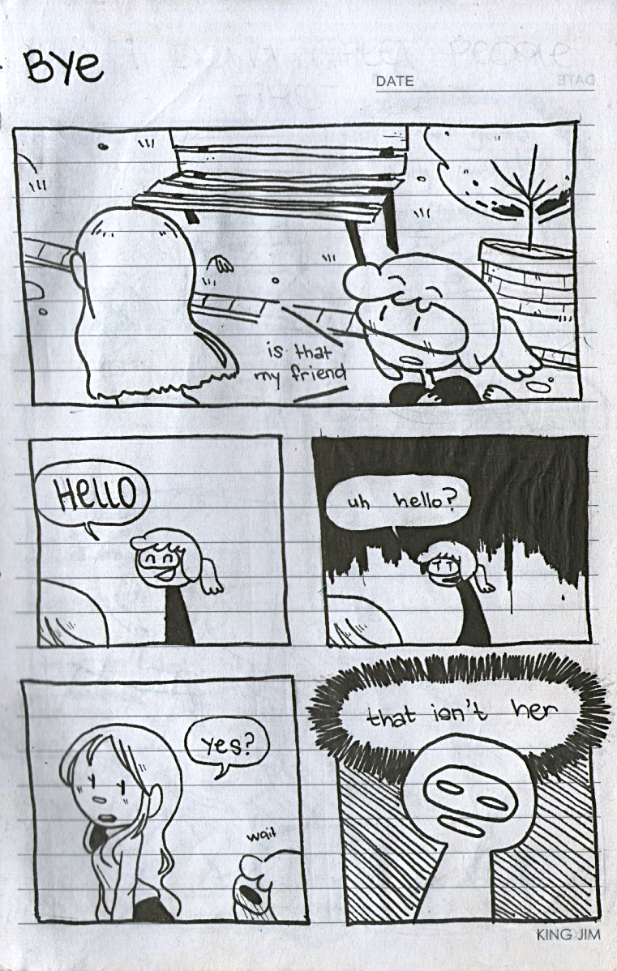 BYe
DATE
is that
my friend
Hello
uh hello?
yes?
wait
that isn't her
KING JIM